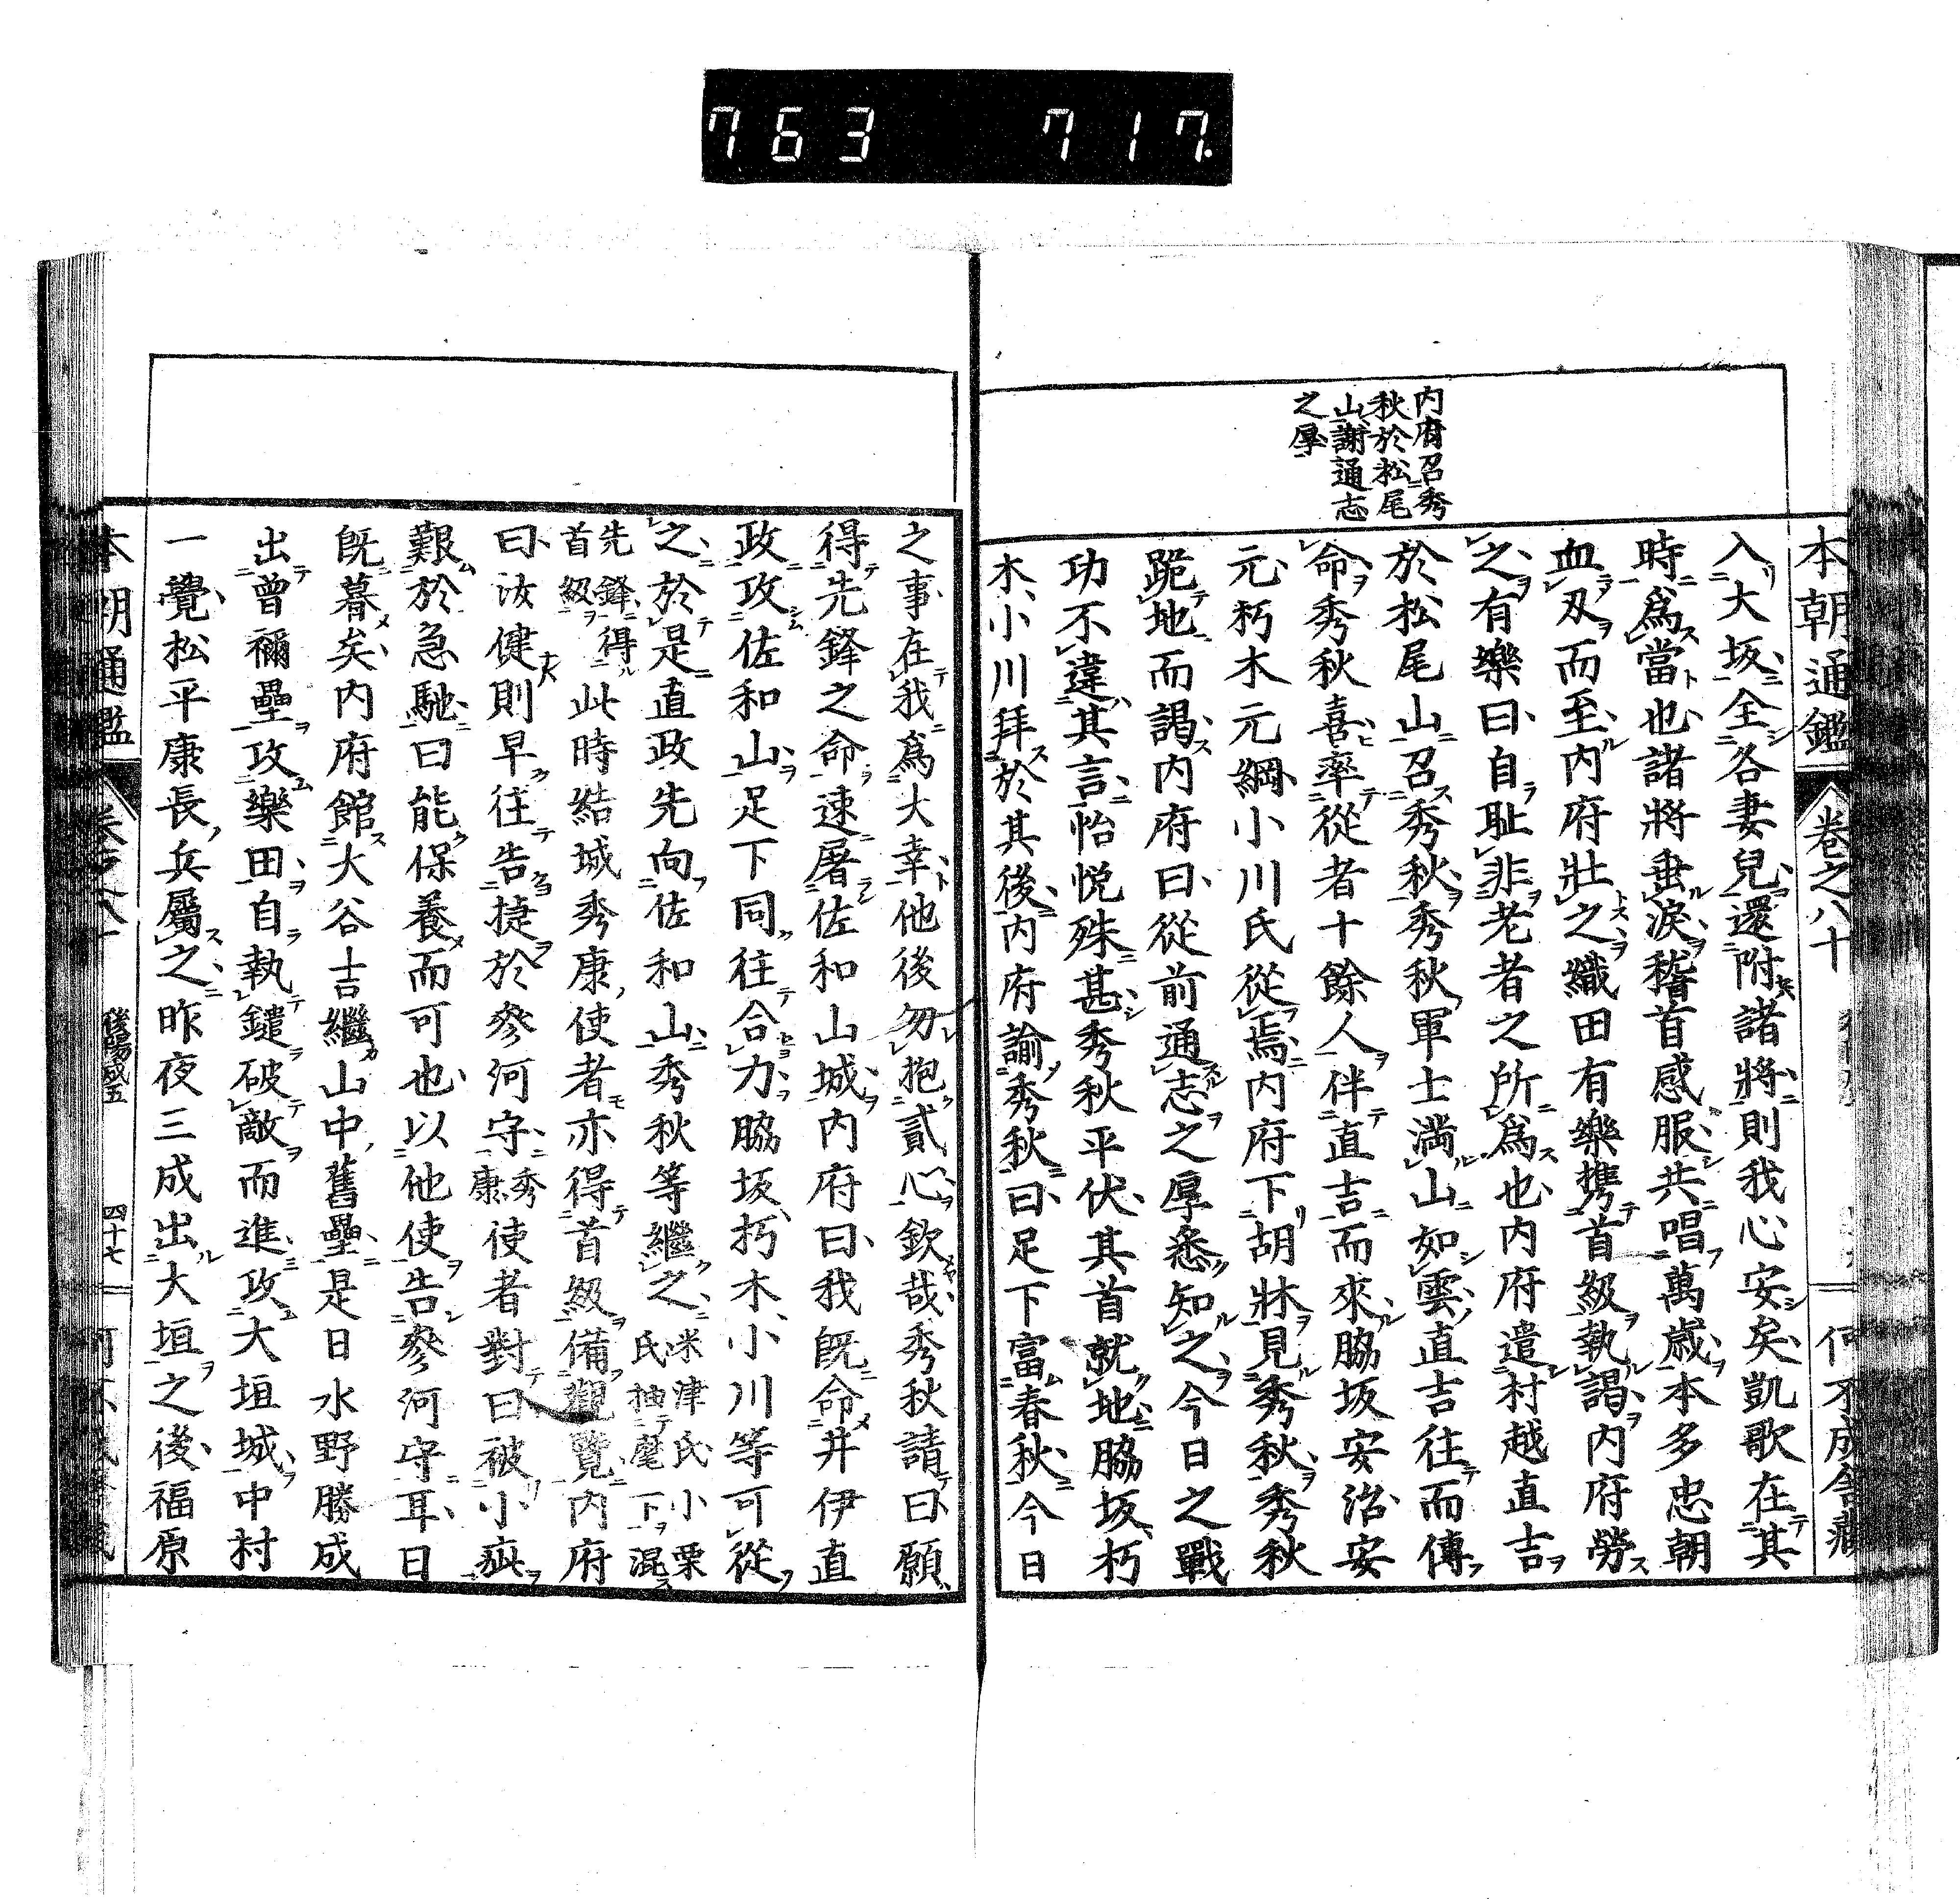 763 717.
本朝通鑑 卷之八十
何不成舍藏
內府召秀
秋於松尾
山謝通志
之厚
入大坂全各妻兒還附諸將則我心安矣凱歌在其
時爲當也諸將垂淚稽首感服共唱萬歲本多忠朝
血刄而至內府壯之織田有樂携首級執謁內府勞
之有樂曰自耻非老者之所爲也內府遣村越直吉
於松尾山召秀秋秀秋軍士滿山如雲直吉往而傳
命秀秋喜率從者十餘人伴直吉而來脇坂安治安
元朽木元綱小川氏從焉內府下胡牀見秀秋秀秋
跪地而謁內府曰從前通志之厚悉知之今日之戰
功不違其言怡悅殊甚秀秋平伏其首就地脇坂朽
木小川拜於其後內府諭秀秋曰足下富春秋今日
之事在我爲大幸他後勿抱貳心欽哉秀秋請曰願
得先鋒之命速屠佐和山城內府曰我旣命井伊直
政攻佐和山足下同往合力脇坂朽木小川等可從
之於是直政先向佐和山秀秋等繼之米津氏小栗氏抽麾下混
先鋒得首級此時結城秀康使者亦得首級備觀覽內府
曰汝健則早往告捷於參河守秀康使者對曰被小疵
艱於急馳曰能保養而可也以他使告參河守耳日
旣暮矣內府館大谷吉繼山中舊壘是日水野勝成
出曾禰壘攻樂田自執鑓破敵而進攻大垣城中村
一覺松平康長兵屬之昨夜三成出大垣之後福原
本朝通鑑
後陽成五
四十七